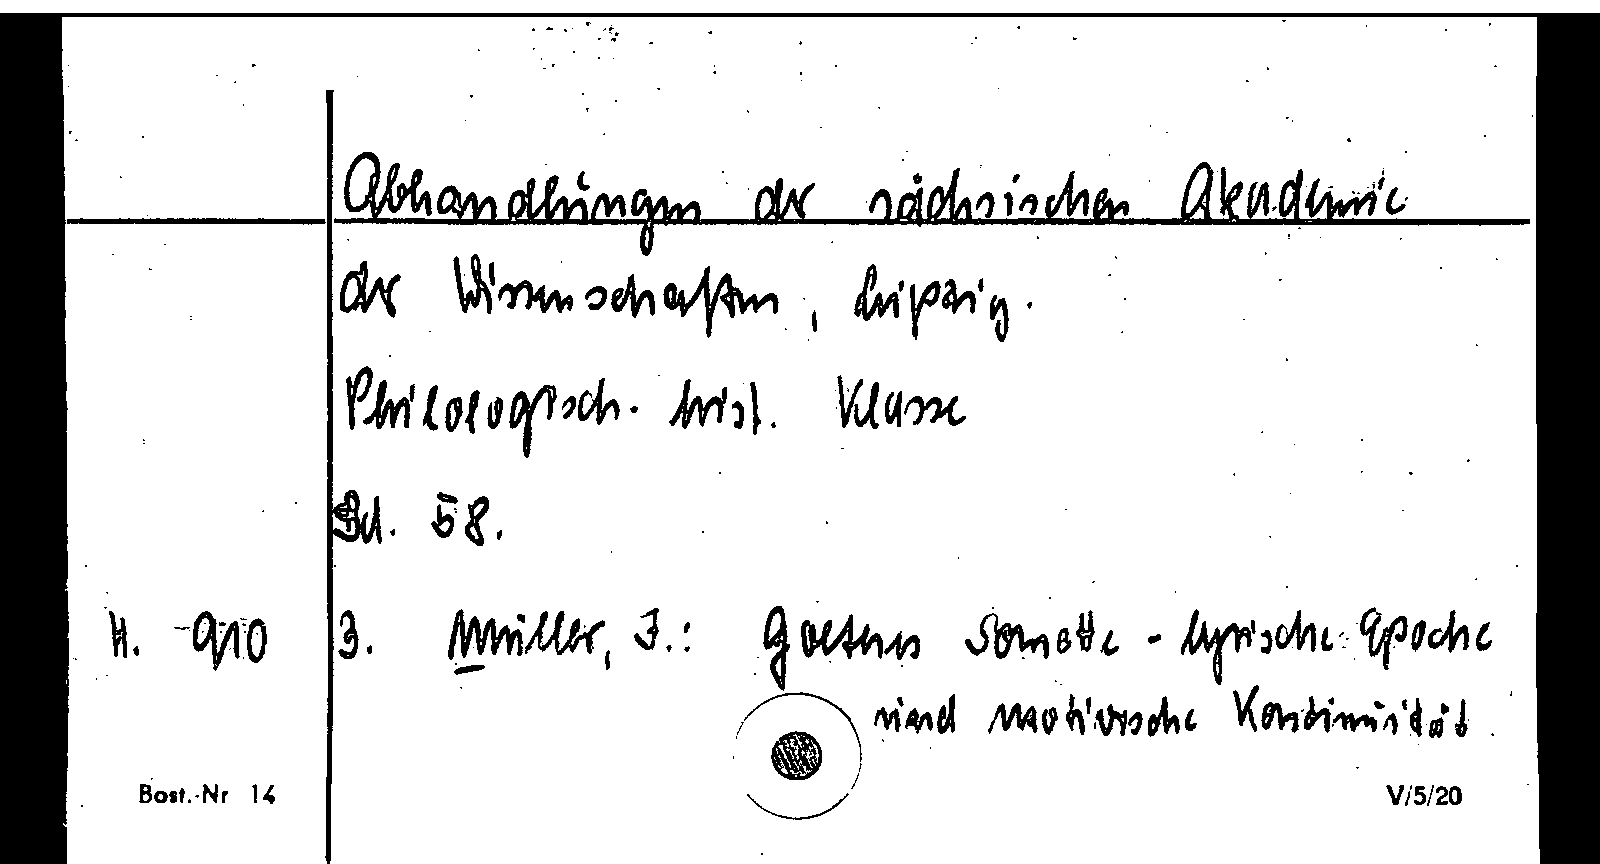 Abhandlungen der sächsischen Akademie
der Wissenschaften, Leipzig.
Philologisch-hist. Klasse
Bd. 58.
H. 910 3. Müller, J.: Goethes Sonette - lyrische Epoche
und motivische Kontinuität
Best.-Nr 14 V/5/20